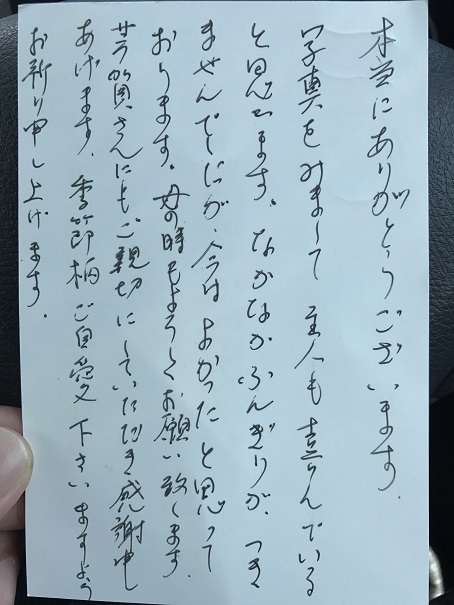 本当にありがとうございます。
写真をみまして主人も喜んでいる
と思います。なかなかふんぎりが、つき
ませんでしたが、今はよかったと思って
おります。母の時もよろしくお願い致します。
芳賀さんにもご親切にしていただき感謝申
あげます。季節柄ご自愛下さいますよう
お祈り申し上げます。